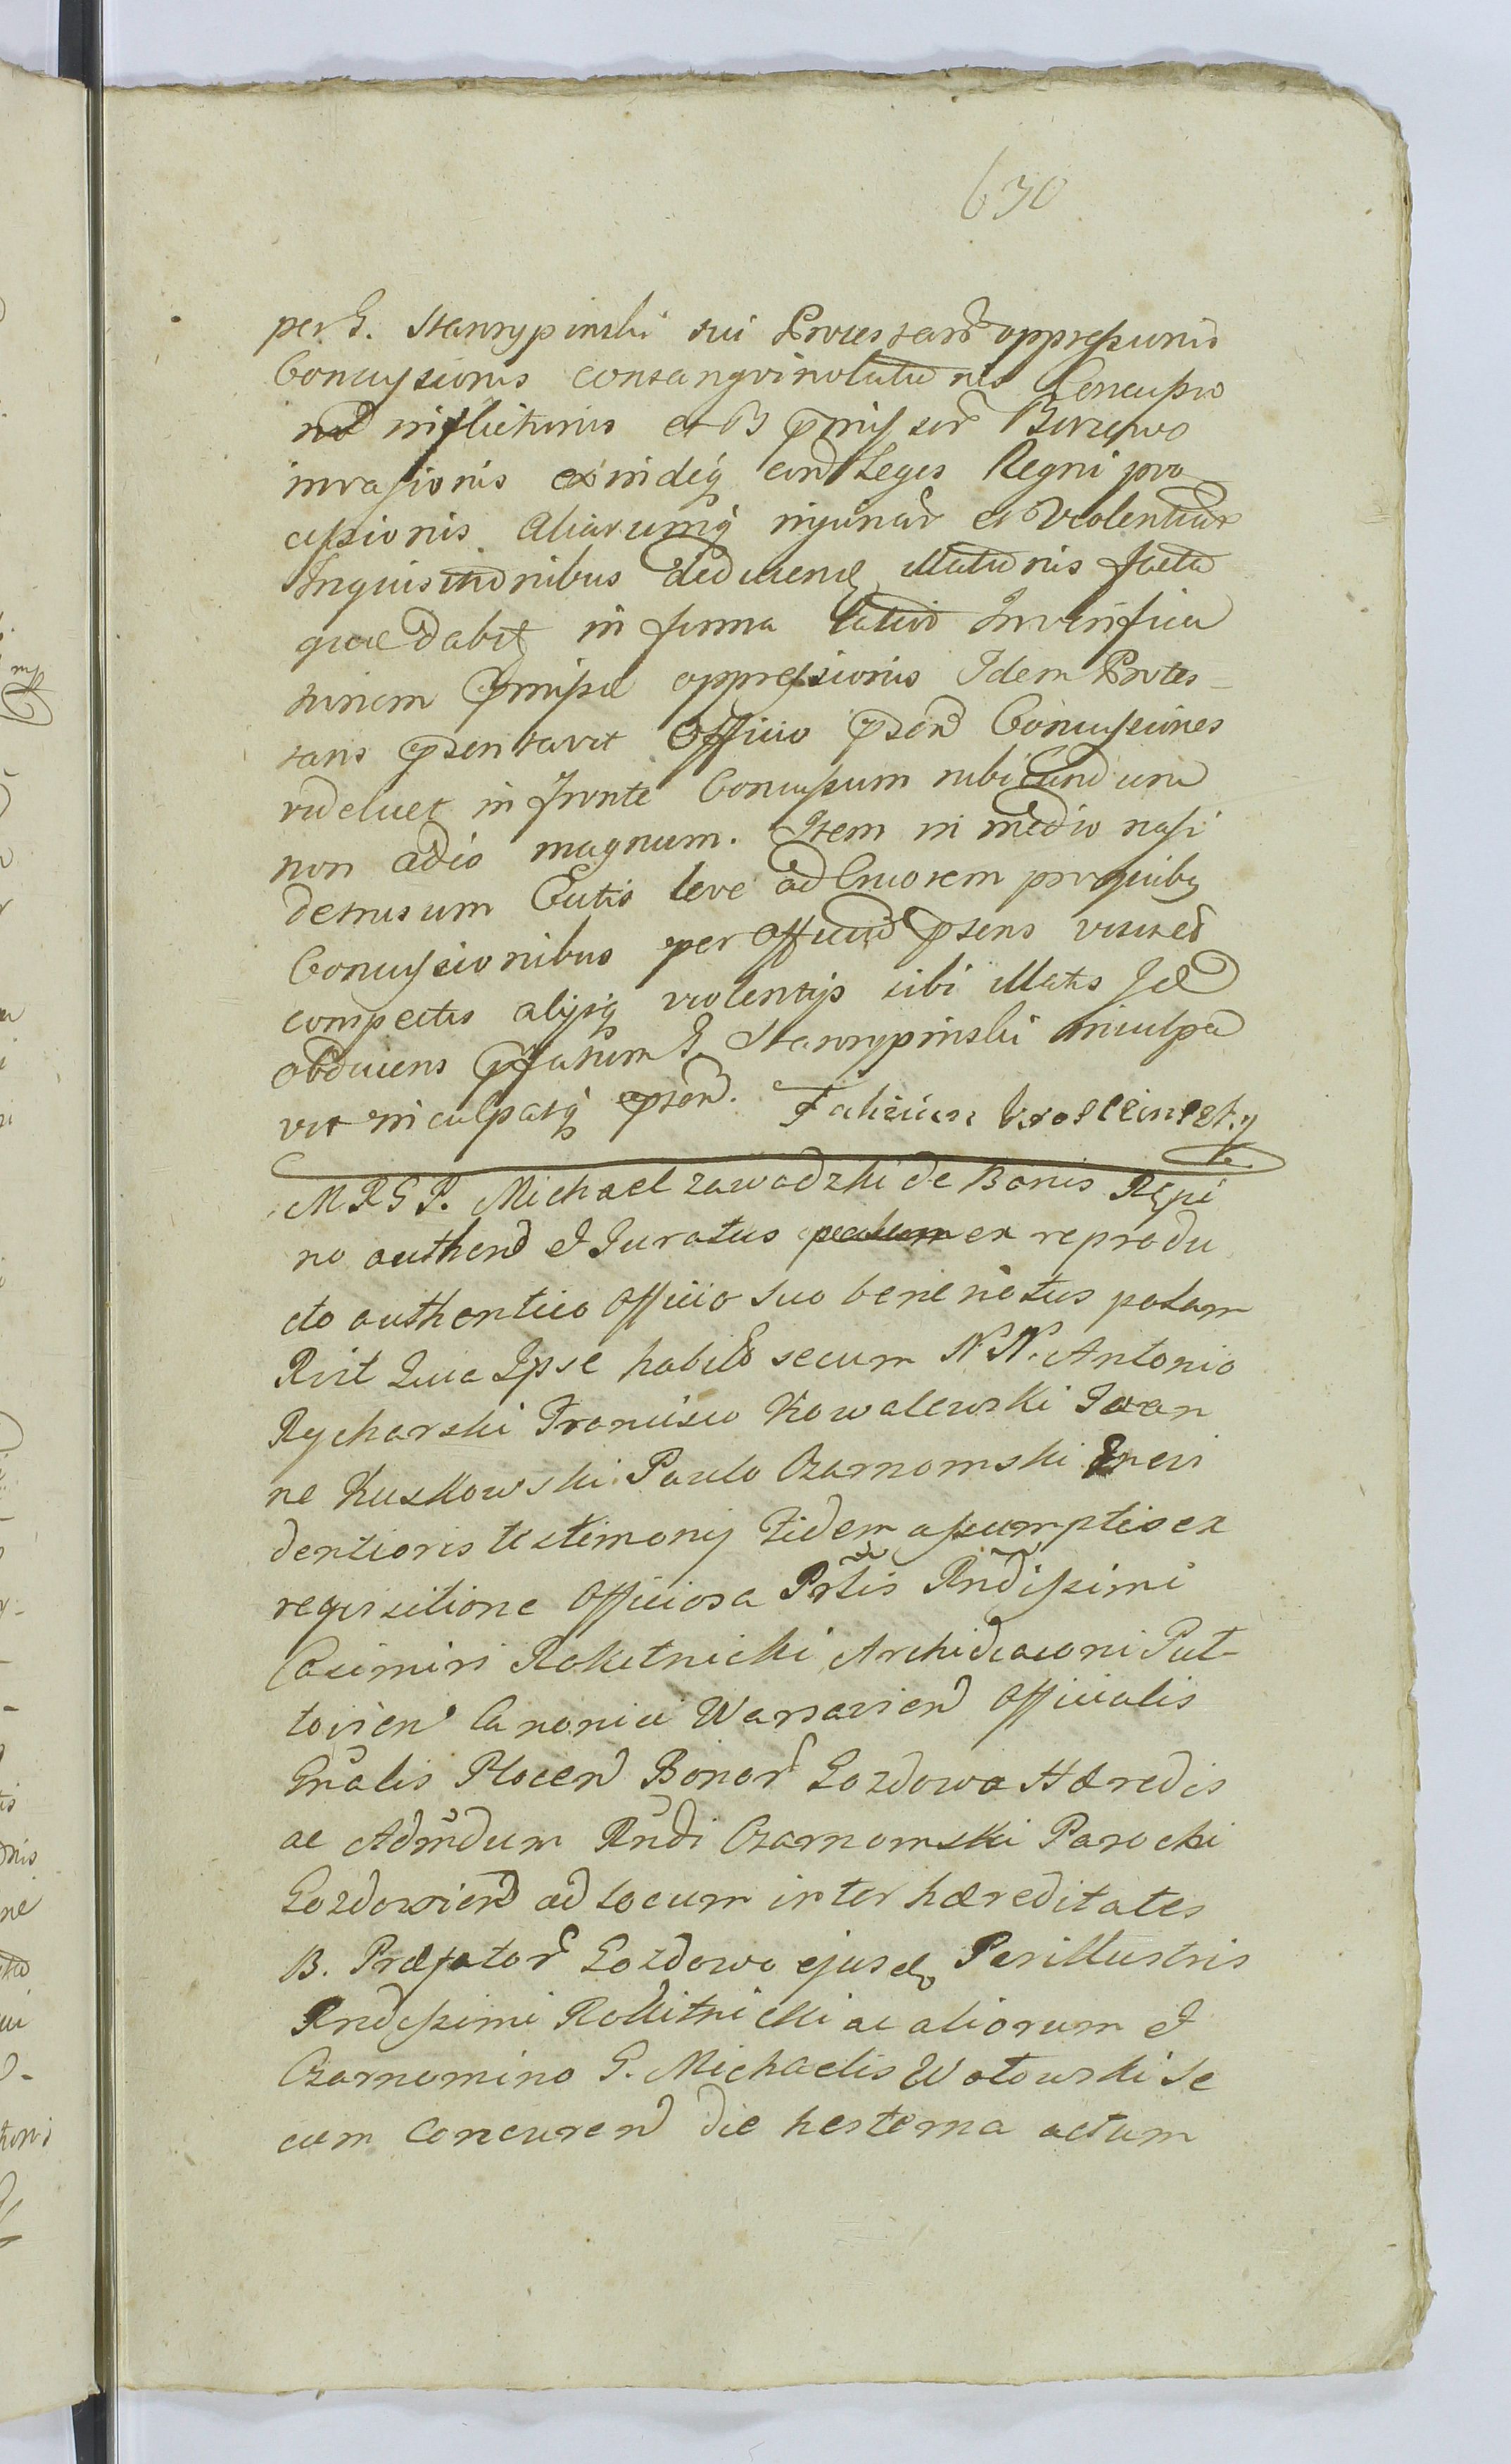 630
per G. Stanrypinski sui Protestans oppressionis
Concussionis consangvinolationis Concussio
nis inflictionis et B pmissor Borzewo
invasionis exindeq cond Leges Regni pro
cessionis Aliarumq injuriar et Violentiar
Inquisitionibus deducend, illationis facta
quae dabit in forma latius In verifica
tionem pmissae oppressionis Idem Protes-
tans psentavit Officio psend Concussiones
videlicet in fronte Concussum rubicundum
non adeo magnum. Item in medio nasi
detrusum Cutis leve ad Cruorem pro quibq
Concussionibus per Officiu psens visis et
compertis alijsq violentijs sibi illatis Id
obducens pfatum G Stanrypinski inculpa
vit inculpatq psend.
M R G P. Michael Zawadzki de Bonis Rępi
no authend et Juratus ex reprodu
cto authentico Officio suo bene notus palam
Rvit Quia Ipse habitis secum N N. Antonio
Rycharski Francisco Kowalewski Joan
ne Kuskowski Paulo Czarnomski In evi
dentioris testimonij fidem assumptis ex
requisitione Officiosa Prtis Rndissimi
Casimiri Rokitnicki Archidiaconi Pul-
tovien Canonici Warsavien Officialis
Gnalis Plocen Bonor Gozdowo Haeredis
ac Admdum Rndi Czarnomski Parochi
Gozdovien ad locum inter haereditates
B. Praefator Gozdowo ejusd Perillustris
Rndissimi Rokitnicki ac aliorum et
Czarnomino G. Michaelis Wotowski se
cum Concuren die hesterna actum